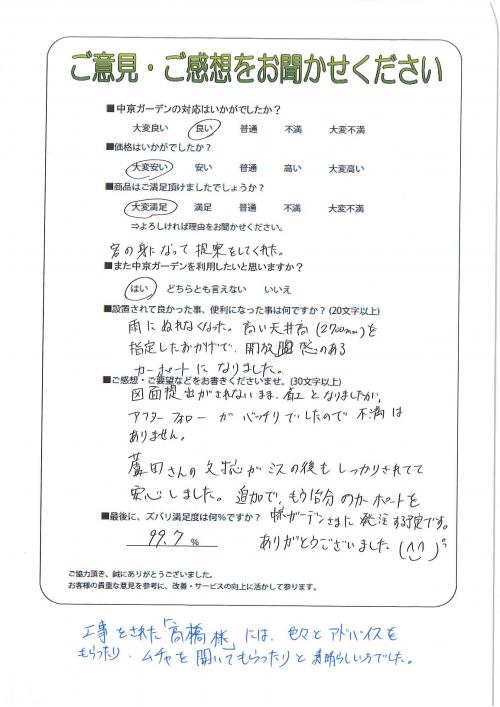 ご意見・ご感想をお聞かせください
■中京ガーデンの対応はいかがでしたか?
大変良い 良い 普通 不満 大変不満
■価格はいかがでしたか?
大変安い 安い 普通 高い 大変高い
■商品はご満足頂けましたでしょうか?
大変満足 満足 普通 不満 大変不満
⇒よろしければ理由をお聞かせください。
客の身になって提案をしてくれた。
■また中京ガーデンを利用したいと思いますか?
はい どちらとも言えない いいえ
■設置されて良かった事、便利になった事は何ですか?(20文字以上)
雨にぬれなくなった。高い天井高(2700mm)を
指定したおかげで、開放感のある
カーポートになりました。
■ご感想・ご要望などをお書きくださいませ。(30文字以上)
図面提出がされないまま、着工となりましたが、
アフターフォローがバッチリでしたので不満は
ありません。
さんの対応がミスの後もしっかりされてて
安心しました。追加で、もう1台分のカーポートを
ガーデンさまに発注する予定です。
■最後に、ズバリ満足度は何%ですか?
99.7 %
ありがとうございました(^^)
ご協力頂き、誠にありがとうございました。
お客様の貴重な意見を参考に、改善・サービスの向上に活かして参ります。
工事をされた「高橋様」には、色々とアドバイスを
もらったり、ムチャを聞いてもらったりと素晴らしい方でした。